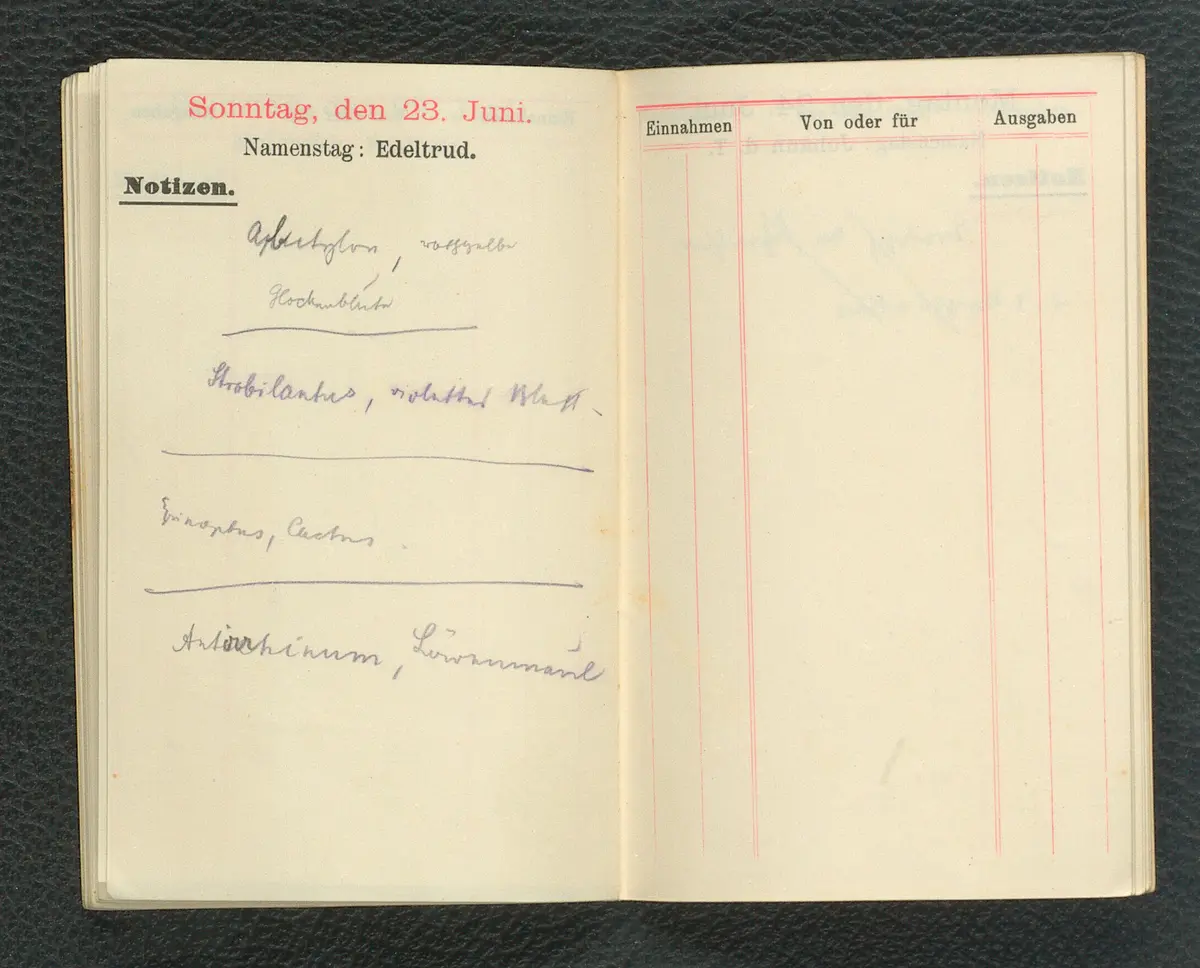 Sonntag, den 23. Juni.
Namenstag: Edeltrud.
Notizen.
Abutylon,
Glockenblüte
Strobilantus, violettes Blatt
Cactus
Antirrhinum, Löwenmaul
Einnahmen Von oder für Ausgaben